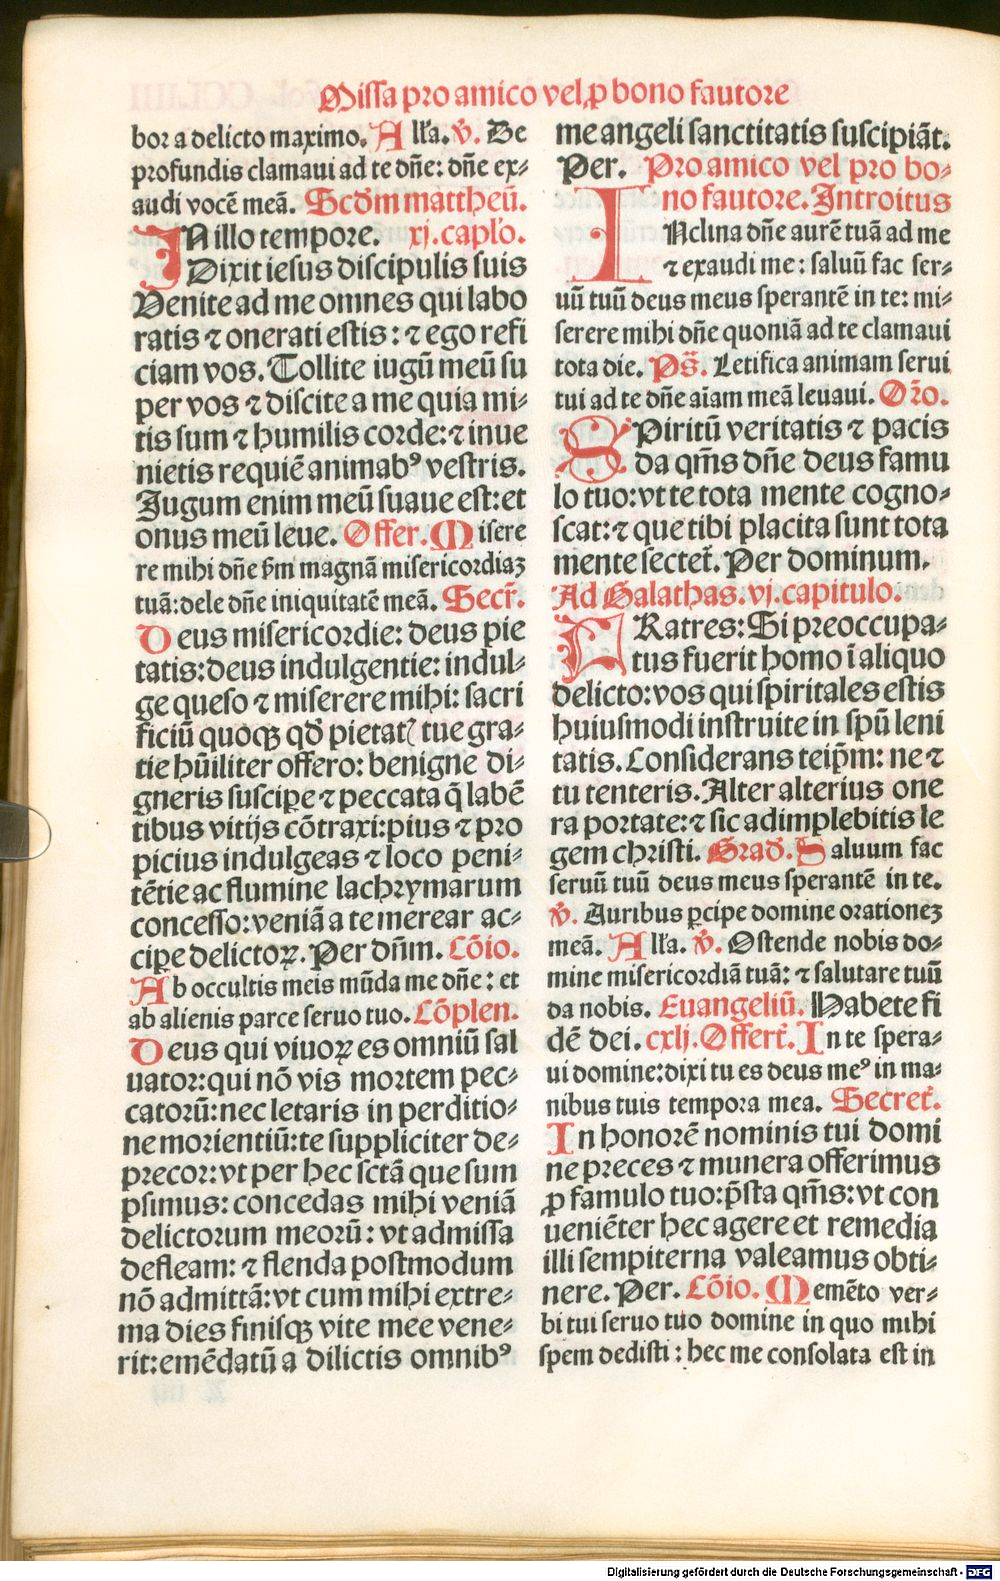 Missa pro amico vel ꝓ bono fautore
bor a delicto maximo. All'a. ℣. De
profundis clamaui ad te dñe: dñe ex⸗
audi vocē meā. Scd'm mattheū.
IN illo tempore. xj. capl'o.
Dixit iesus discipulis suis
Venite ad me omnes qui labo
ratis ⁊ onerati estis: ⁊ ego refi
ciam vos. Tollite iugū meū su
per vos ⁊ discite a me quia mi⸗
tis sum ⁊ humilis corde: ⁊ inue
nietis requiē animabꝰ vestris.
Jugum enim meū suaue est: et
onus meū leue. Offer. Misere
re mihi dñe ẜm magnā misericordiaꝫ
tuā: dele dñe iniquitatē meā. Secr̄.
Deus misericordie: deus pie
tatis: deus indulgentie: indul⸗
ge queso ⁊ miserere mihi: sacri
ficiū quoqꝫ qd' pietatꝭ tue gra⸗
tie hūiliter offero: benigne di⸗
gneris suscipe ⁊ peccata q̄ labē
tibus vitijs cōtraxi: pius ⁊ pro
picius indulgeas ⁊ loco peni⸗
tētie ac flumine lachrymarum
concesso: veniā a te merear ac⸗
cipe delictoꝝ. Per dñm. Cōio.
Ab occultis meis mūda me dñe: et
ab alienis parce seruo tuo. Cōplen.
Deus qui viuoꝝ es omniū sal
uator: qui nō vis mortem pec⸗
catorū: nec letaris in perditio⸗
ne morientiū: te suppliciter de⸗
precor: vt per hec sctā que sum
psimus: concedas mihi veniā
delictorum meorū: vt admissa
defleam: ⁊ flenda postmodum
nō admittā: vt cum mihi extre⸗
ma dies finisqꝫ vite mee vene⸗
rit: emēdatū a dilictis omnibꝰ
me angeli sanctitatis suscipiāt.
Per. Pro amico vel pro bo⸗
no fautore. Introitus
INclina dñe aurē tuā ad me
⁊ exaudi me: saluū fac ser⸗
uū tuū deus meus sperantē in te: mi⸗
serere mihi dñe quoniā ad te clamaui
tota die. Ps̄. Letifica animam serui
tui ad te dñe aīam meā leuaui. Or̄o.
SPiritū veritatis ⁊ pacis
da qm̄s dñe deus famu
lo tuo: vt te tota mente cogno⸗
scat: ⁊ que tibi placita sunt tota
mente sectet̄. Per dominum.
Ad Galathas. vj. capitulo.
FRatres: Si preoccupa⸗
tus fuerit homo ī aliquo
delicto: vos qui spiritales estis
huiusmodi instruite in spū leni
tatis. Considerans teip̄m: ne ⁊
tu tenteris. Alter alterius one
ra portate: ⁊ sic adimplebitis le
gem christi. Grad'. Saluum fac
seruū tuū deus meus sperantē in te.
℣. Auribus ꝑcipe domine orationeꝫ
meā. All'a. ℣. Ostende nobis do⸗
mine misericordiā tuā: ⁊ salutare tuū
da nobis. Euangeliū. Habete fi
dē dei. cxlj. Offert̄. In te spera⸗
ui domine: dixi tu es deus meꝰ in ma⸗
nibus tuis tempora mea. Secret̄.
In honorē nominis tui domi
ne preces ⁊ munera offerimus
ꝓ famulo tuo: p̄sta qm̄s: vt con
ueniēter hec agere et remedia
illi sempiterna valeamus obti⸗
nere. Per. Cōio. Memēto ver⸗
bi tui seruo tuo domine in quo mihi
spem dedisti: hec me consolata est in
Digitalisierung gefördert durch die Deutsche Forschungsgemeinschaft - DFG